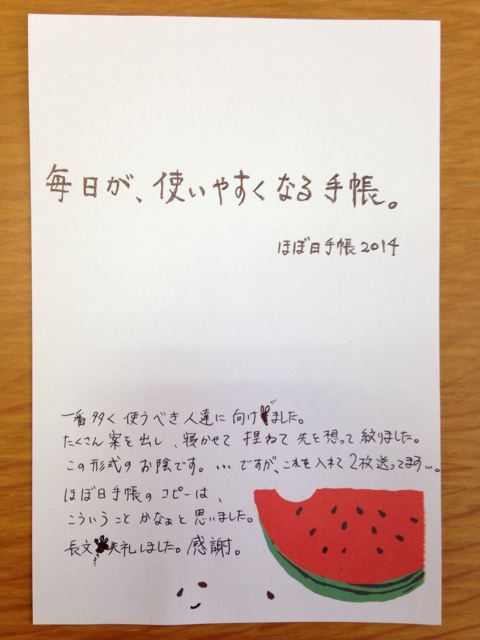 毎日が、使いやすくなる手帳。
ほぼ日手帳2014
一番多く使うべき人達に向けました。
たくさん案を出し、寝かせて捏ねて先を想って絞りました。
この形式のお陰です。…ですが、これを入れて2枚送ってます…。
ほぼ日手帳のコピーは、
こういうことかなぁと思いました。
長文失礼しました。感謝。